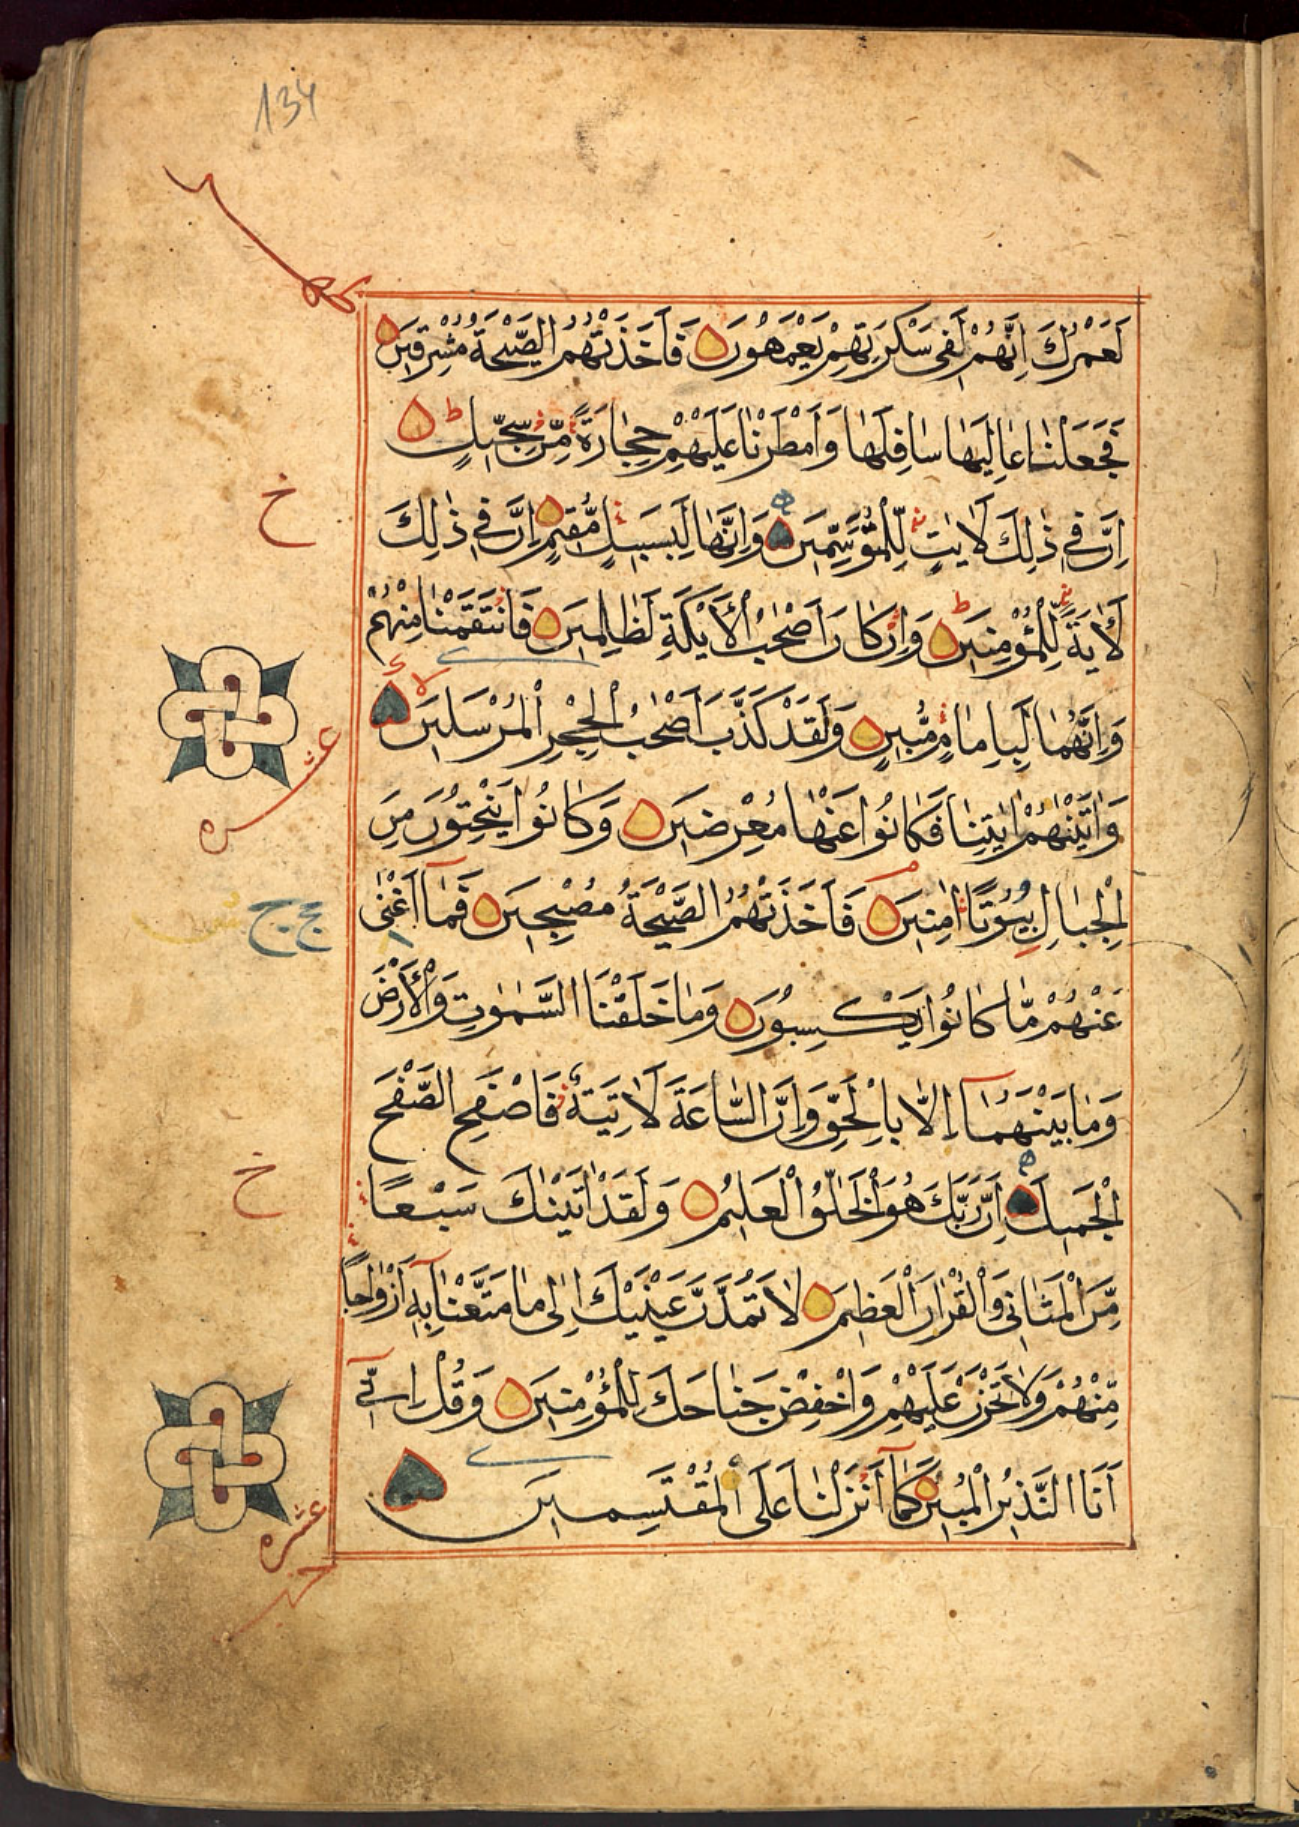 134
لَعَمْرُكَ اِنَّهُمْ لَفِى سَكْرَتِهِمْ يَعْمَهُونَ فَاَخَذَتْهُمُ الصَّيْحَةُ مُشْرِقِينَ
فَجَعَلْنَا عَالِيَهَا سَافِلَهَا وَاَمْطَرْنَا عَلَيْهِمْ حِجَارَةً مِّنْ سِجِّيلٍ ط
خ
اِنَّ فِى ذٰلِكَ لَاٰيٰتٍ لِّلْمُتَوَسِّمِينَ وَاِنَّهَا لَبِسَبِيلٍ مُّقِيمٍ اِنَّ فِى ذٰلِكَ
لَاٰيَةً لِّلْمُؤْمِنِينَ ط وَاِنْ كَانَ اَصْحٰبُ الْاَيْكَةِ لَظَالِمِينَ فَانْتَقَمْنَا مِنْهُمْ
وَاِنَّهُمَا لَبِاِمَامٍ مُّبِينٍ وَلَقَدْ كَذَّبَ اَصْحٰبُ الْحِجْرِ الْمُرْسَلِينَ لا
عشره
وَاٰتَيْنٰهُمْ اٰيٰتِنَا فَكَانُوا عَنْهَا مُعْرِضِينَ وَكَانُوا يَنْحِتُونَ مِنَ
الْجِبَالِ بُيُوتًا اٰمِنِينَ فَاَخَذَتْهُمُ الصَّيْحَةُ مُصْبِحِينَ فَمَآ اَغْنٰى
عَنْهُمْ مَّا كَانُوا يَكْسِبُونَ وَمَا خَلَقْنَا السَّمٰوٰتِ وَالْاَرْضَ
وَمَا بَيْنَهُمَآ اِلَّا بِالْحَقِّ وَاِنَّ السَّاعَةَ لَاٰتِيَةٌ فَاصْفَحِ الصَّفْحَ
خ
الْجَمِيلَ اِنَّ رَبَّكَ هُوَ الْخَلّٰقُ الْعَلِيمُ وَلَقَدْ اٰتَيْنٰكَ سَبْعًا
مِّنَ الْمَثَانِى وَالْقُرْاٰنَ الْعَظِيمَ لَا تَمُدَّنَّ عَيْنَيْكَ اِلٰى مَا مَتَّعْنَا بِهٖٓ اَزْوَاجًا
مِّنْهُمْ وَلَا تَحْزَنْ عَلَيْهِمْ وَاخْفِضْ جَنَاحَكَ لِلْمُؤْمِنِينَ وَقُلْ اِنِّىٓ
اَنَا النَّذِيرُ الْمُبِينُ كَمَآ اَنْزَلْنَا عَلَى الْمُقْتَسِمِينَ
عشره